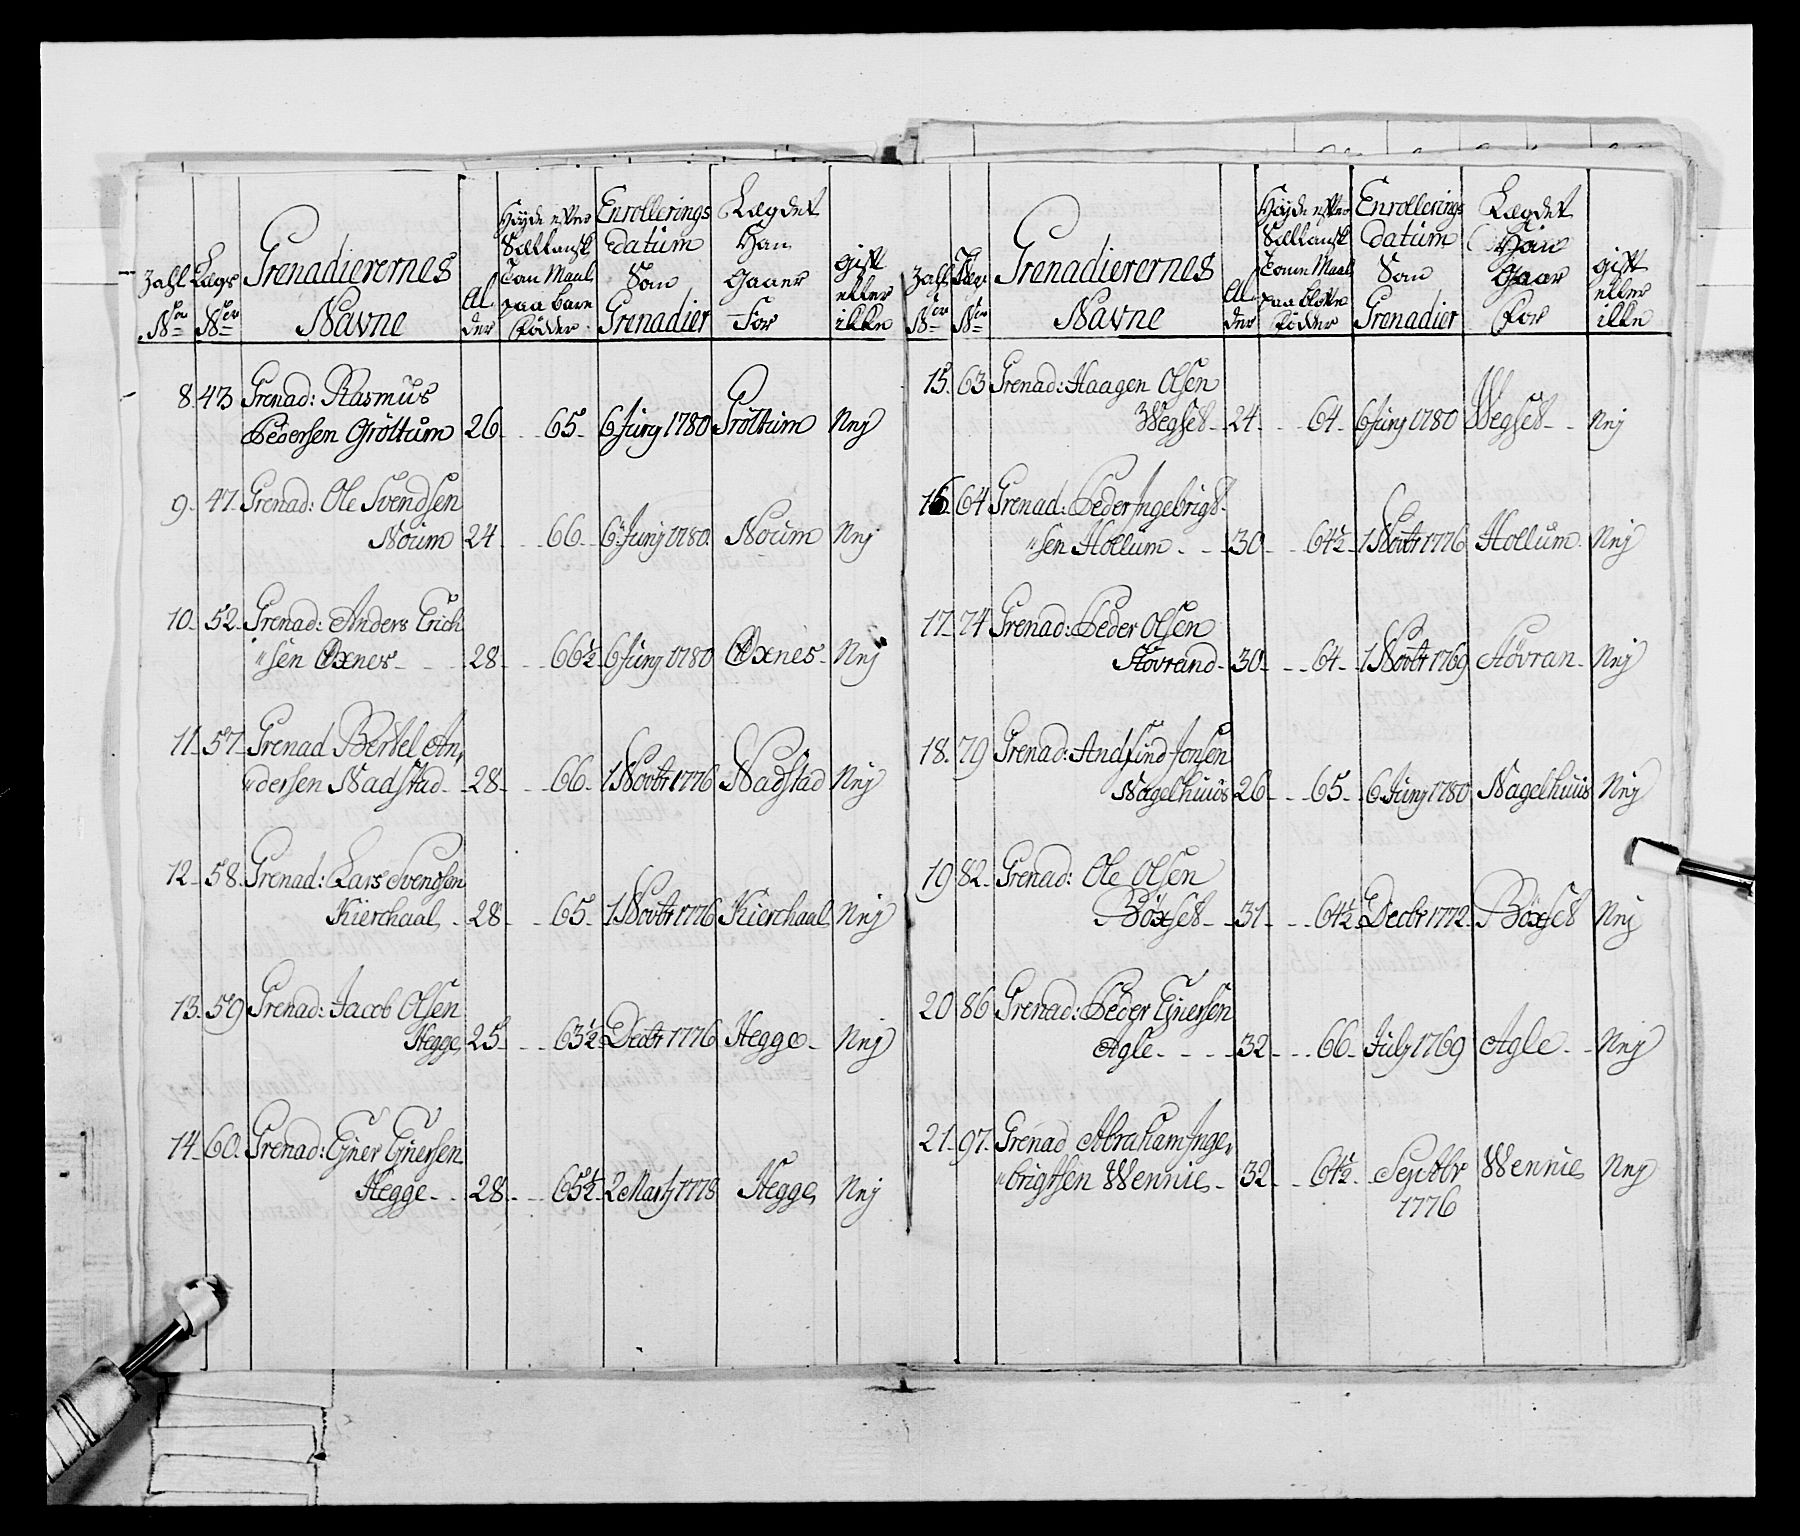 Zahl
No
Lægs
No
Grenadierernes
Navne
Al
der
Høyde efter
Sællandsk
Tom Maal
paa bare
Fødder
Enrollerings
datum
Som
Grenadier
Lægdet
Han
Gaaer
For
gift
eller
ikke
8. 43 Grenad: Rasmus
Pedersen Gröttum 26 65 6 Junj 1780 Gröttum Nej
9. 47. Grenad: Ole Svendsen
Noüm 24 66 6 Junj 1780 Noüm Nej
10. 52. Grenad: Anders Erich
"sen Oxnes 28 66½ 6 Junj 1780 Oxnes Nej
11. 57 Grenad Bertel An,
"dersen Nadstad 28 66 1 Novbr 1776 Nadstad Nej
12. 58. Grenad: Lars Svendsen
Kierchaal 28 65 1 Novbr 1776 Kierchaal Nej
13. 59 Grenad: Jacob Olsen
Hegge 25 63½ Decbr 1776 Hegge Nej
14. 60. Grenad: Ejner Ejnersen
Hegge 28 65½ 2 Martj 1778 Hegge Nej
Zahl
No
Lægs
No
Grenadierernes
Navne
Al
der
Høyde efter
Sællansk
Tomm Maal
paa blotte
Fødder
Enrollerings
datum
Som
Grenadier
Lægdet
Han
Gaar
For
gift
eller
ikke
15. 63 Grenad: Haagen Olsen
Wegset 24 64 6 Junj 1780 Wegset Nej
16. 64 Grenad: Peder Ingebrigt-
"sen Hollum 30 64½ 1 Novbr 1776 Hollum Nej
17. 74 Grenad: Peder Olsen
Stövrand 30 64 1 Novbr 1769 Stövran Nej
18. 79 Grenad: Andfind Jonsen
Nagelhuus 26 65 6 Junj 1780 Nagelhuus Nej
19 82. Grenad: Ole Olsen
Böxset 31 64½ Decbr 1772 Böxset Nej
20 86 Grenad: Peder Ejnersen
Agle 32 66 July 1769 Agle Nej
21. 97. Grenad Abraham Inge,
"brigtsen Wennie 32 64½ Septbr Wennie Nej
1776